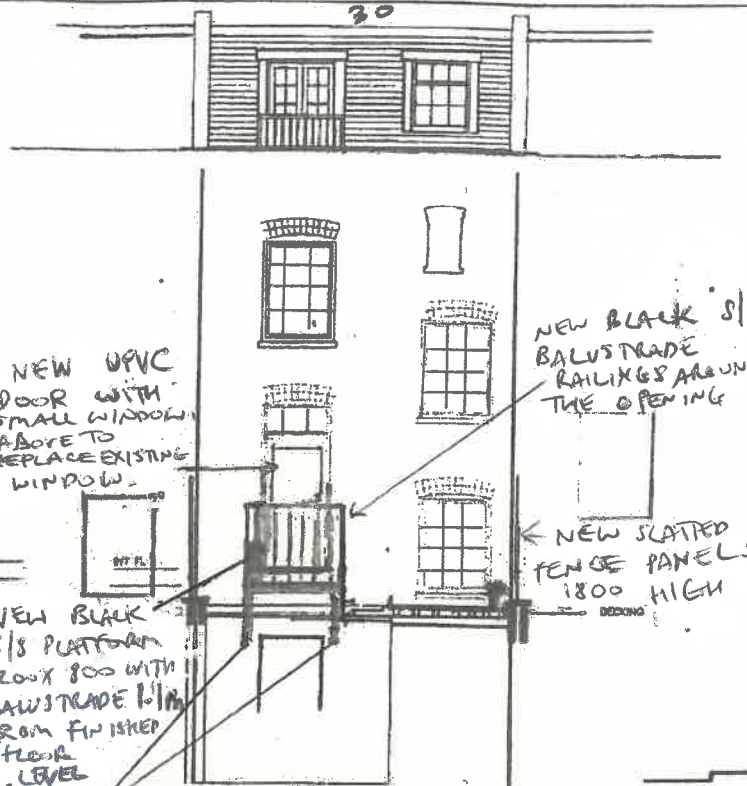 30
NEW UPVC
DOOR WITH
SMALL WINDOW
ABOVE TO
REPLACE EXISTING
WINDOW.
NEW BLACK S/
BALUSTRADE
RAILINGS AROUN
THE OPENING
NEW SLATTED
FENCE PANEL
1800 HIGH
DECKING
NEW BLACK
S/S PLATFORM
800 WITH
BALUSTRADE 1.1m
FROM FINISHED
FLOOR
LEVEL